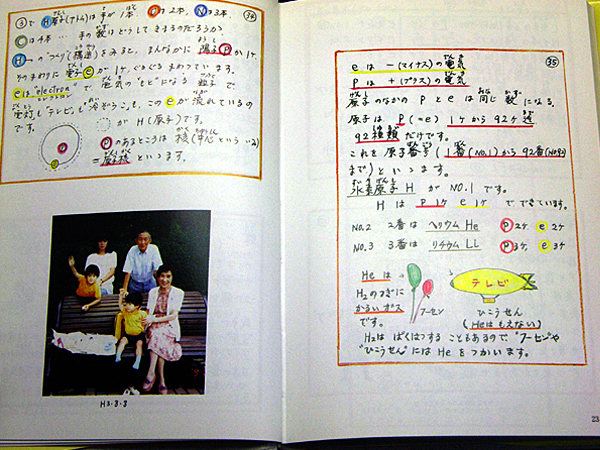 ③で H原子(アトム)は手が1本、Oは2本、Nは3本、 ㉞
Cは4本… 手の数はどうしてきまるのだろうか
H の つくり(構造)をみると、まんなかに 陽子 P が1ケ、
そのまわりに 電子 e が1ケ、ぐるぐるまわっています。
eは"electron"で 電気の"もと"になる 粒子で
電灯も"テレビ"も"冷ぞうこ"も、この e が 流れているの
です。
が H (原子)です。
Pのあるところは 核(中心という いみ)
=原子核 といいます。
P
e
H3.8.8
㉟
e は −(マイナス)の電気
P は +(プラス)の電気
原子のなかの P と e は同じ 数になる。
原子は P(=e) 1ケから92ケ迄
92種類だけです。
これを 原子番号(1番(No.1)から 92番(No.92)
まで)といいます。
水素原子 H が NO.1 です。
H は P 1ケ e 1ケ で できています。
NO.2 2番は ヘリウム He P 2ケ e 2ケ
NO.3 3番は リチウム Li P 3ケ e 3ケ
He は
H₂のつぎに
かるいガス
です。
フーセン
テレビ
ひこうせん
(Heはもえない)
H₂は ばくはつする こともあるので "フーセン"や
"ひこうせん"には He をつかいます。
23